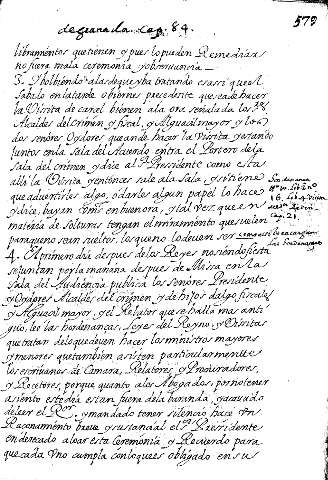 de granada Cap. 84.
579
libramentos que tienen y pues lo pueden Remediar
no fuera mala ceremonia y observancia
3. Y bolbiendo a las de que yba tratando es assi que el
sabado en la tarde o biernes precedente que ea de hacer
la Visita de carcel bienen a la ora señalada los SSres
Alcaldes del crimen y fiscal, y Alguacil mayor y los
dos señores Oydores que an de hacer la Visita, y estando
juntos en la Sala del Acuerdo entra el Portero de la
sala del crimen y dice al Sr. Presidente como esta
alli la Visita y entonces sale a la Sala, y si tiene
que advertirles algo, o darles algun papel lo hace
y dice, bayan Vms en buenora, y tal vez que en
materia de solturas tengan el miramiento que suelen
para que no sean sueltos, los que no lo deven ser
4. El primero dia despues de los Reyes no siendo fiesta
se juntan por la mañana despues de Missa en la
sala del Audiencia publica los señores Presidente
y Oydores Alcaldes del crimen, y de hijos dalgo fiscales
y Alguacil mayor. y el Relator que se halla mas anti
guo, lee las hordenanças, Leyes del Reyno, y Visitas
que tratan de lo que deven hacer los ministros mayores
y menores que tambien asisten particularmente
los escrivanos de Camara, Relatores, y Procuradores,
y Recetores, porque quanto a los Abogados, por no tener
asiento este dia estan fuera de la baranda, y acavado
de leer el Rr. y mandado tener silencio hace Vn
Raconamiento breve y sustancial el Sr. Presidente
enderecado a loar esta Ceremonia y Recuerdo para
que cada Vno cumpla con lo que es obligado en sus